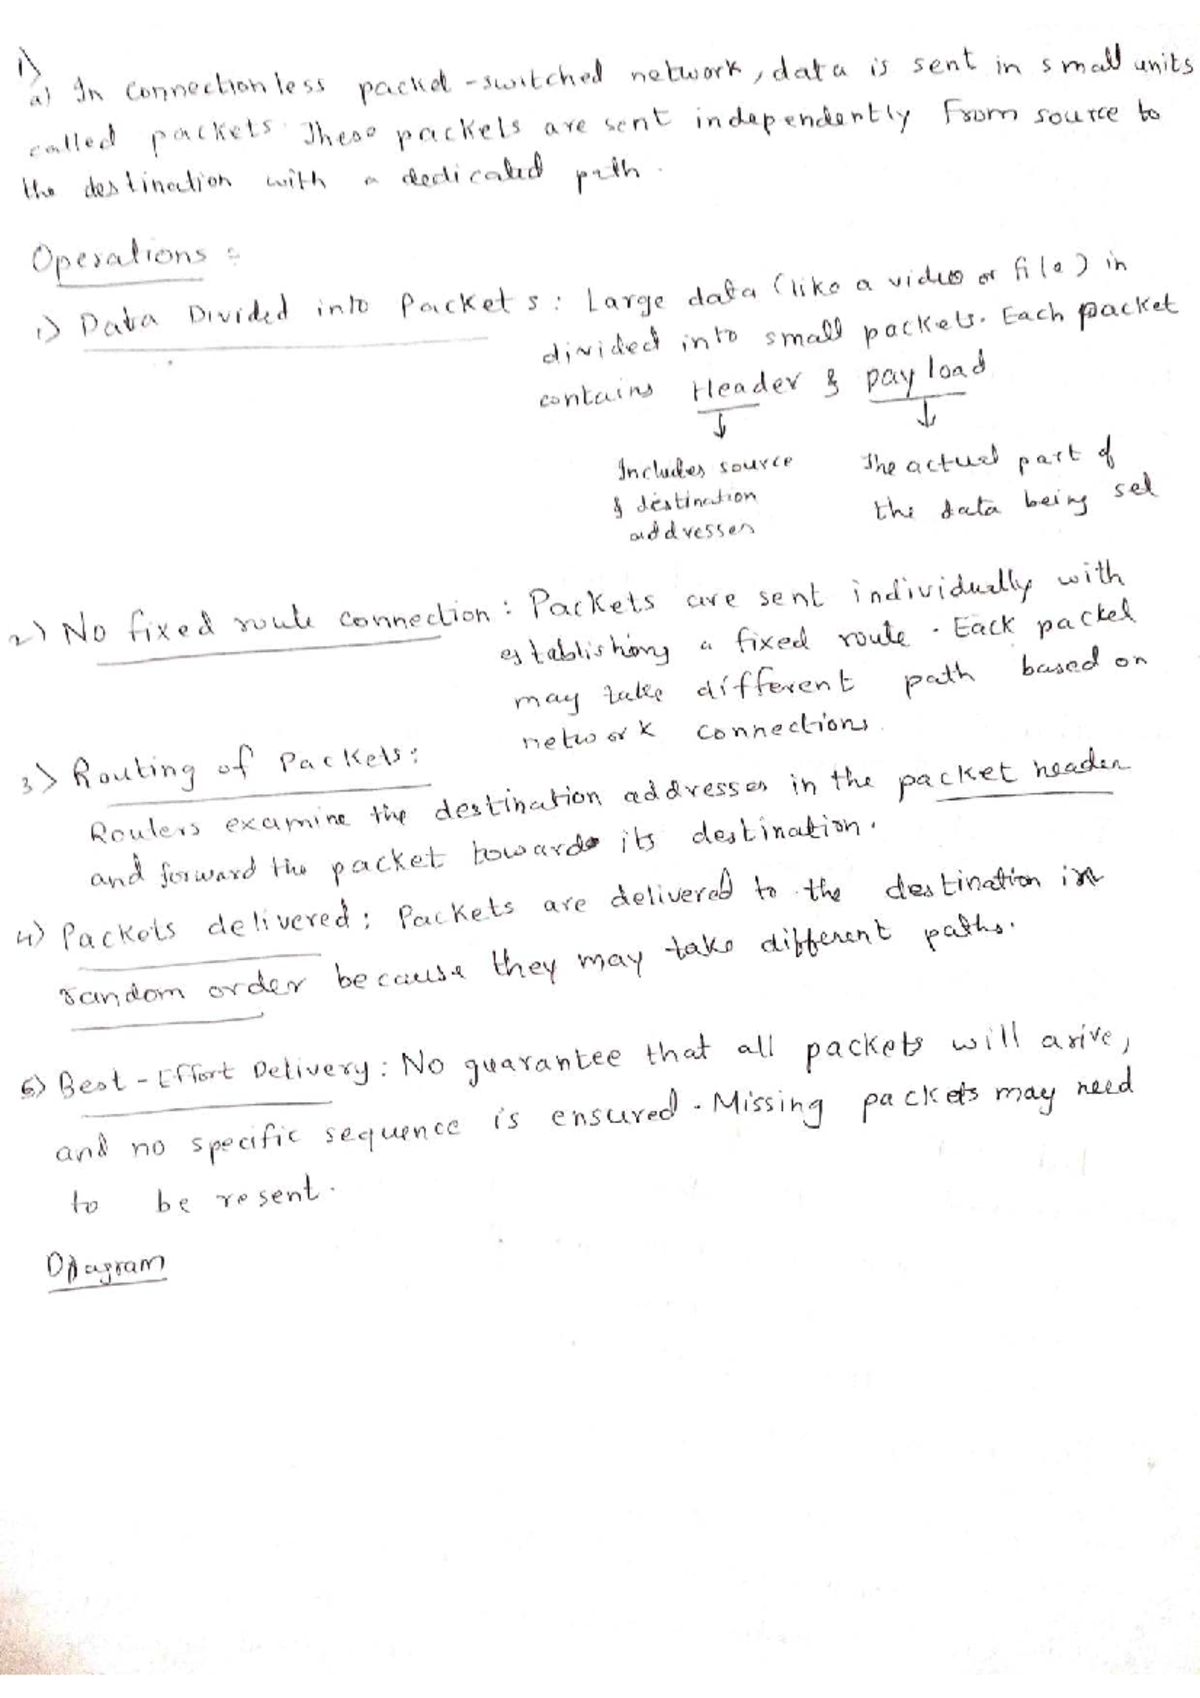 1)
a) In connectionless packet-switched network, data is sent in small units
called packets. These packets are sent independently From source to
the destination with a dedicated path.
Operations :
1) Data Divided into Packets: Large data (like a video or file) in
divided into small packets. Each packet
contains Header & payload
Includes source
& destination
addresses
The actual part of
the data being set
2) No fixed route connection: Packets are sent individually with
establishing a fixed route. Eack packet
may take different path based on
network connections.
3) Routing of Packets:
Routers examine the destination addresses in the packet header
and forward the packet towards its destination.
4) Packets delivered: Packets are delivered to the destination in
random order because they may take different paths.
5) Best-Effort Delivery: No guarantee that all packets will arive,
and no specific sequence is ensured. Missing packets may need
to be resent.
Diagram